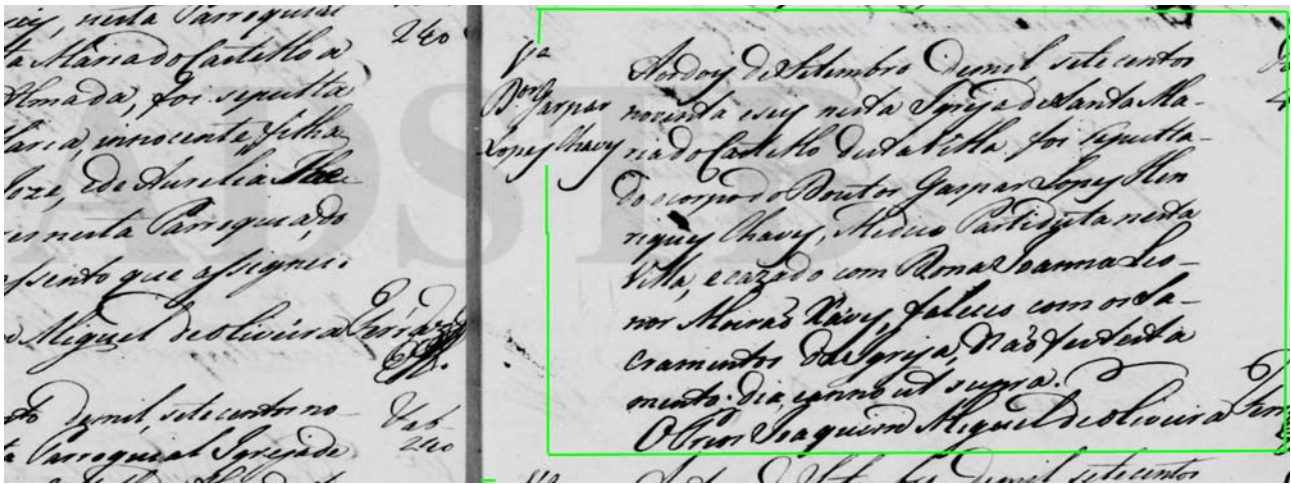 nesta Parroquial
ta Maria do Castello a
240
Almada, foi sepulta
Maria, innocente, filha
oze, e de Aurelia
nesta Parroquia, do
assento que assignei.
Miguel de Oliveira Ferráz
to de mil, sete centos no-
240
ta Parroquial Igreja de
Va
Dor Gaspar
Lopes Chaves
Aos doys de Setembro de mil, sete centos
noventa e seys nesta Igreja de Santa Ma-
ria do Castello desta Villa foi sepulta-
do o corpo do Doutor Gaspar Lopes Hen
riques Chaves, Medico Partidista nesta
Villa, e cazado com Dona Joanna Leo-
nor Mouraõ faleceo com os Sa-
cramentos da Igreja, Não fes testa
mento. dia, e anno ut supra.
O Prior Joaquim Miguel de Oliveira
Va
de mil sete centos
ADSTB